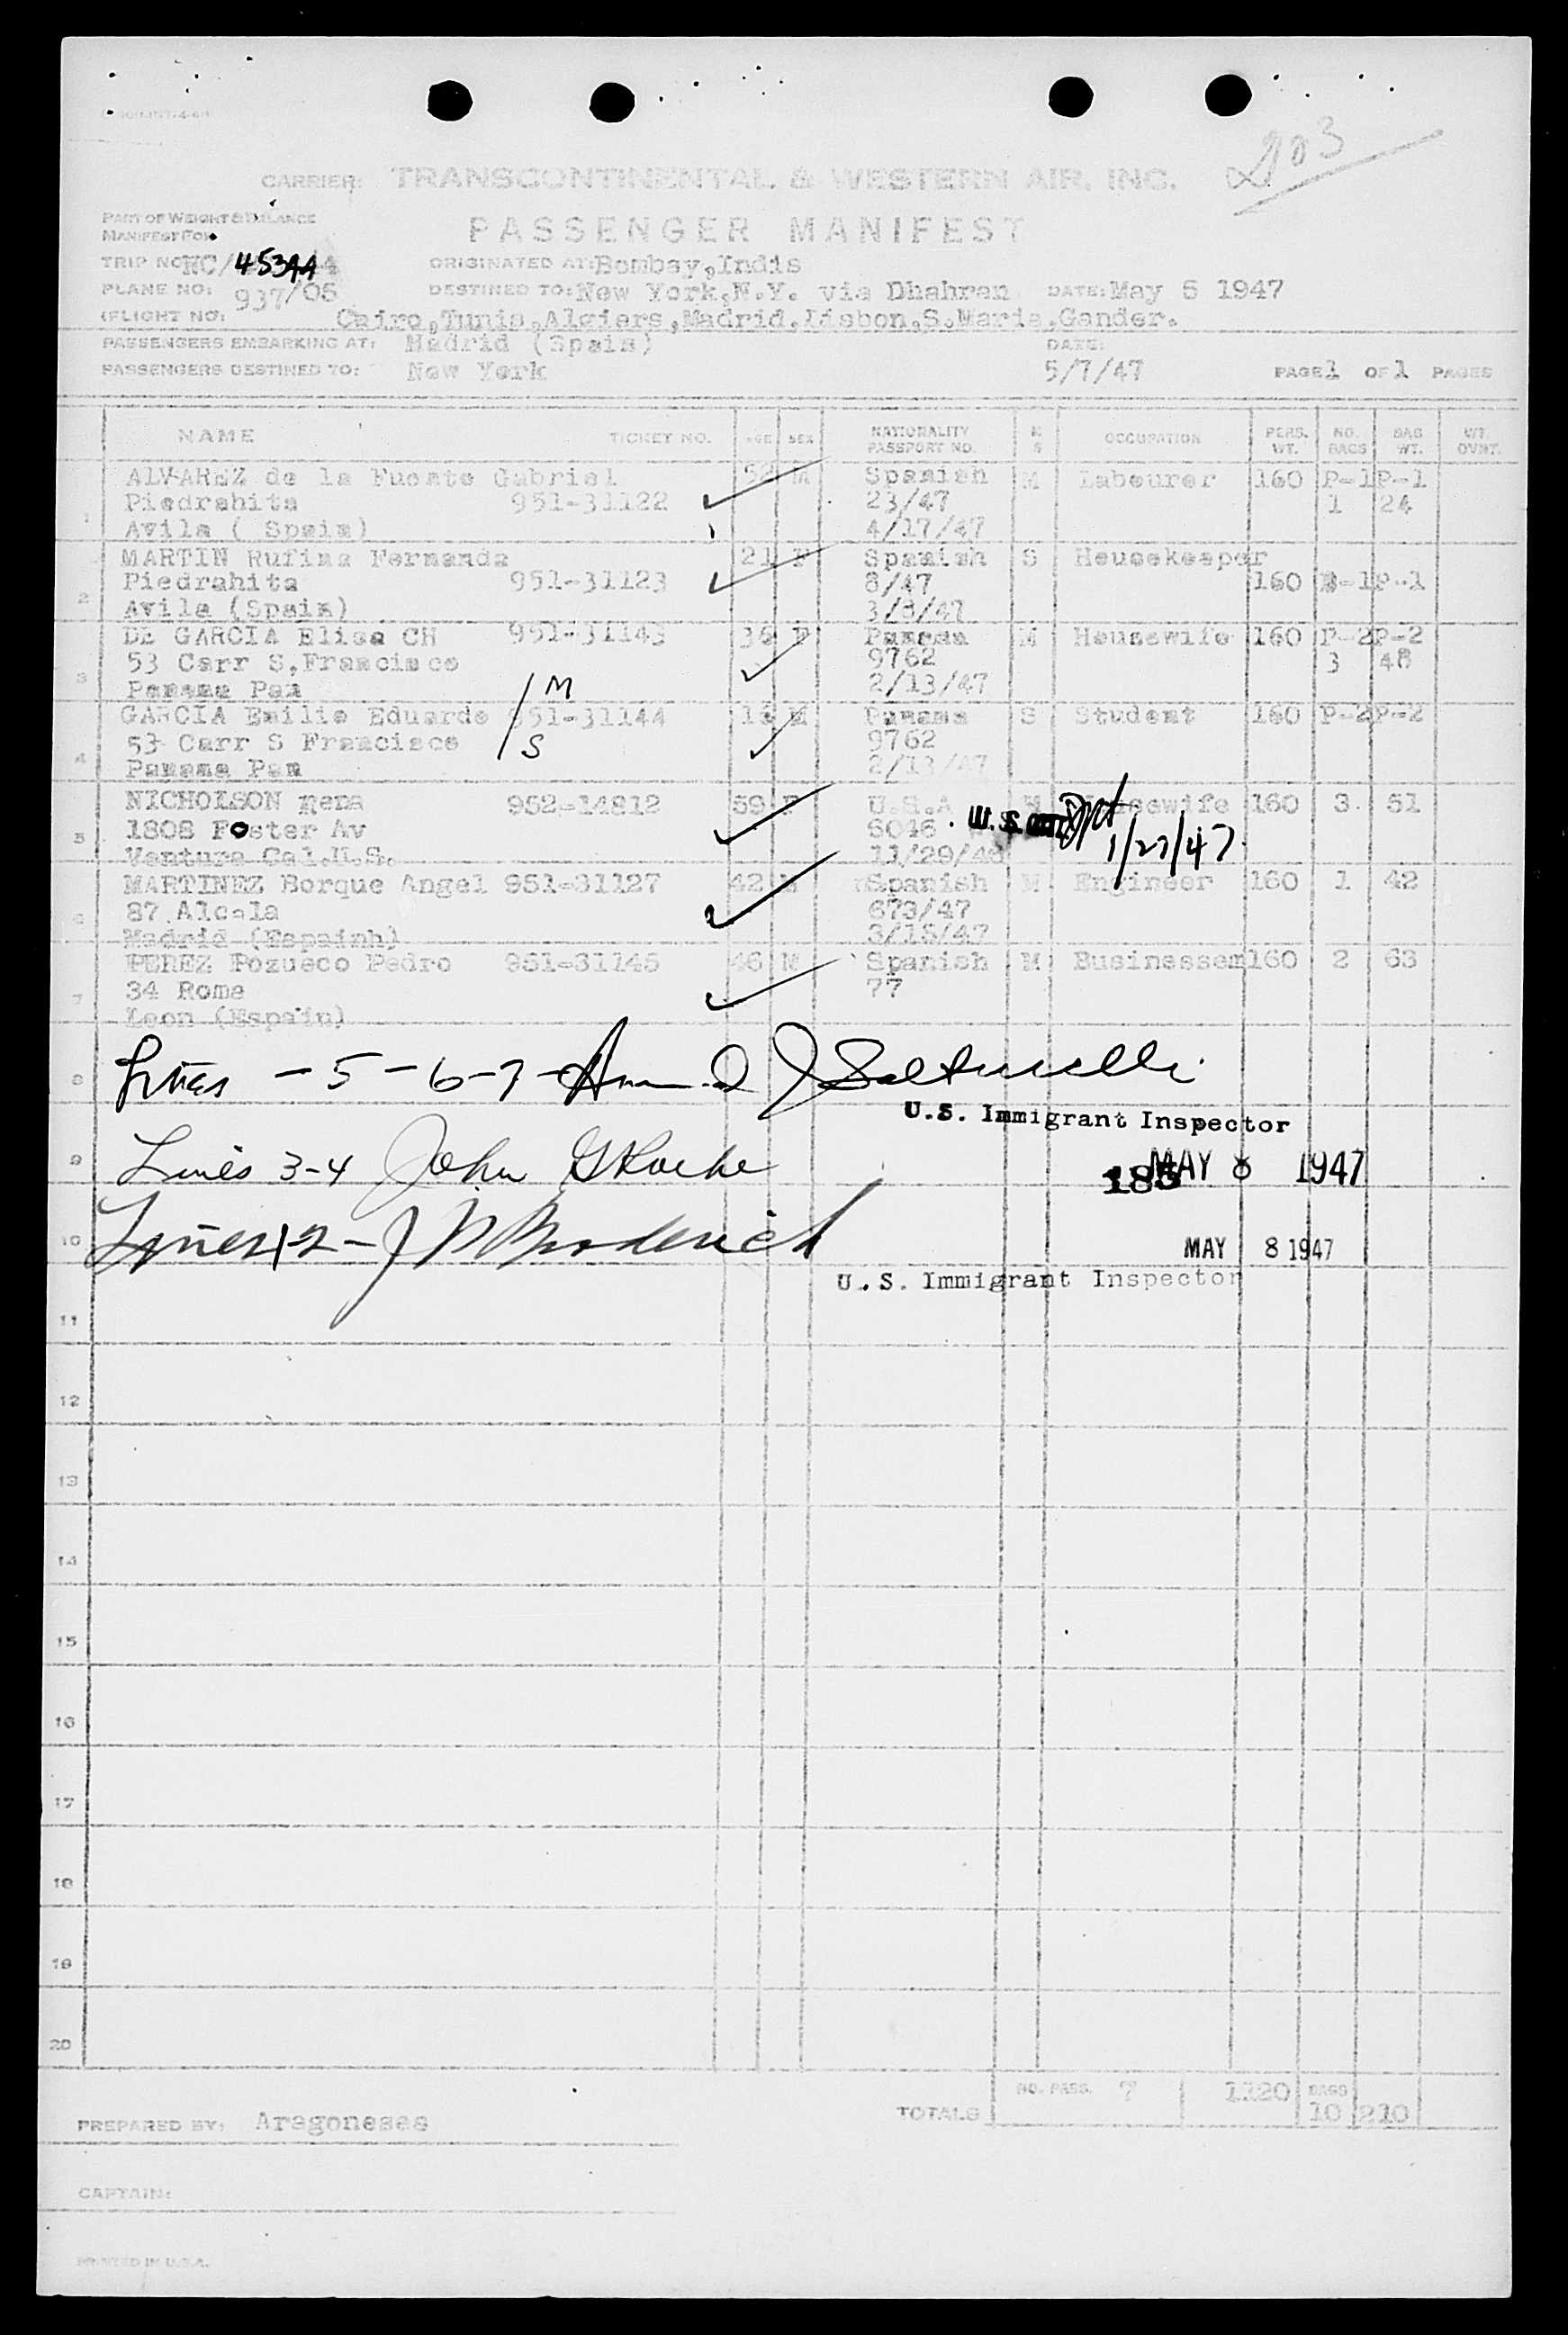 203
CARRIER: TRANSCONTINENTAL & WESTERN AIR, INC.
PART OF WEIGHT & BALANCE
MANIFEST FOR
PASSENGER MANIFEST
TRIP NO: NC/ 45344 ORIGINATED AT: Bombay,Indis
PLANE NO: 937/05 DESTINED TO: New York,N.Y. via Dhahran DATE: May 5 1947
(FLIGHT NO) Cairo,Tunis,Algiers,Madrid,Lisbon,S.Maria,Gander.
PASSENGERS EMBARKING AT: Madrid (Spain) DATE:
PASSENGERS DESTINED TO: New York 5/7/47 PAGE 1 OF 1 PAGES
NAME TICKET NO. AGE SEX NATIONALITY PASSPORT NO. M S OCCUPATION PERS. WT. NO. BAGS BAG WT. WT. OVNT.
1 ALVAREZ de la Fuente Gabriel 52 M Spanish M Labourer 160 P-1 P-1
Piedrahita 951-31122 23/47 1 24
Avila ( Spain) 4/17/47
2 MARTIN Rufina Fernanda 21 F Spanish S Housekeeper
Piedrahita 951-31123 8/47 160 P-1 P-1
Avila (Spain) 3/8/47
3 DE GARCIA Elisa CH 951-31143 36 F Panama M Housewife 160 P-2 P-2
53 Carr S,Francisco 9762 3 48
Panama Pan 2/13/47
M
4 GARCIA Emilio Eduardo 951-31144 M Panama S Student 160 P-2 P-2
53 Carr S Francisco S 9762
Panama Pan 2/13/47
5 NICHOLSON 952-14812 59 F U.S.A M Housewife 160 3 51
1808 Foster Av 6046 U.S. 1/27/47
Ventura Cal.U.S. 11/29/46
6 MARTINEZ Borque Angel 951-31127 42 M Spanish M Engineer 160 1 42
87 Alcala 673/47
Madrid (Espainh) 3/15/47
7 PEREZ Pozueco Pedro 951-31145 46 M Spanish M Businessem 160 2 63
34 Roma 77
Leon (Espain)
8 Lines - 5 - 6 - 7 -
U.S. Immigrant Inspector
9 Lines 3-4 John G Roche 185 MAY 8 1947
10 Lines 1-2 - J Broderick MAY 8 1947
U.S. Immigrant Inspector
11
12
13
14
15
16
17
18
19
20
TOTALS NO. PASS. 7 1120 BAGS 10 210
PREPARED BY: Aragoneses
CAPTAIN:
PRINTED IN U.S.A.